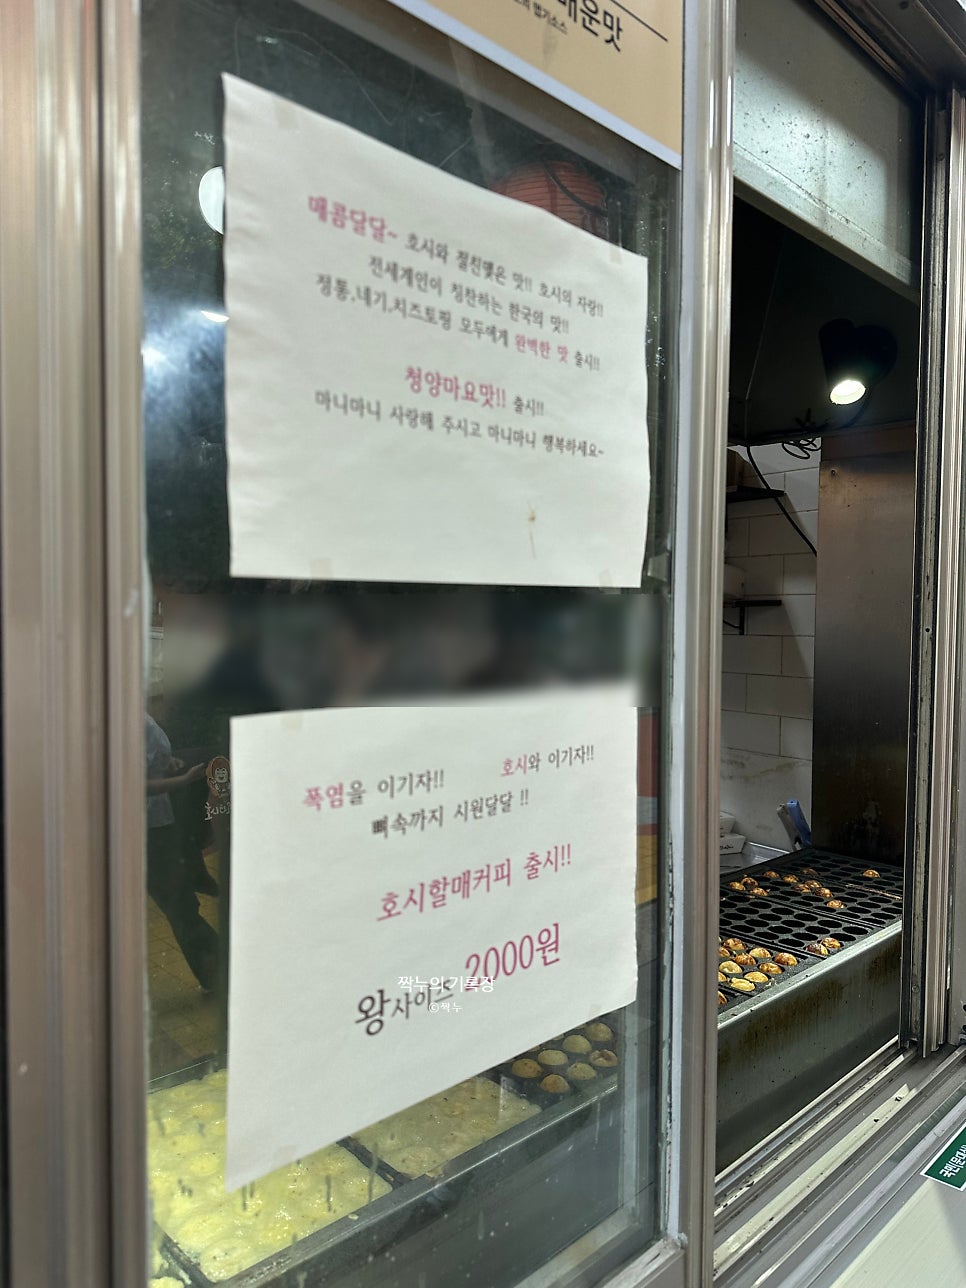 매운맛
매콤달달~ 호시와 절친맺은 맛!! 호시의 자랑!!
전세계인이 칭찬하는 한국의 맛!!
정통,네기,치즈토핑 모두에게 완벽한 맛 출시!!
청양마요맛!! 출시!!
마니마니 사랑해 주시고 마니마니 행복하세요~
폭염을 이기자!! 호시와 이기자!!
뼈속까지 시원달달 !!
호시할매커피 출시!!
왕사이즈 2000원
짝누의 기록장
©짝누